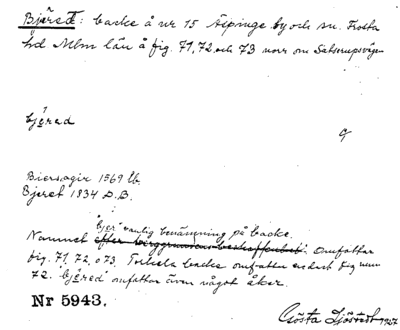 Bjäret: backe å nr 15 Äspinge by och sn. Frosta
hd Mlm län å fig. 71, 72 och 73 norr om Satserupsvägen
bjered
Biersagir 1569 lb.
Bjeret 1834 D.B.
"bjer" vanlig benämning på backe.
Namnet efter berggrundens beskaffenhet. Omfattar
fig. 71, 72, o 73. backe omfattar endast fig num
72. "bjered" omfattar även något åker.
Nr 5943.
Gösta Sjöstedt 1927